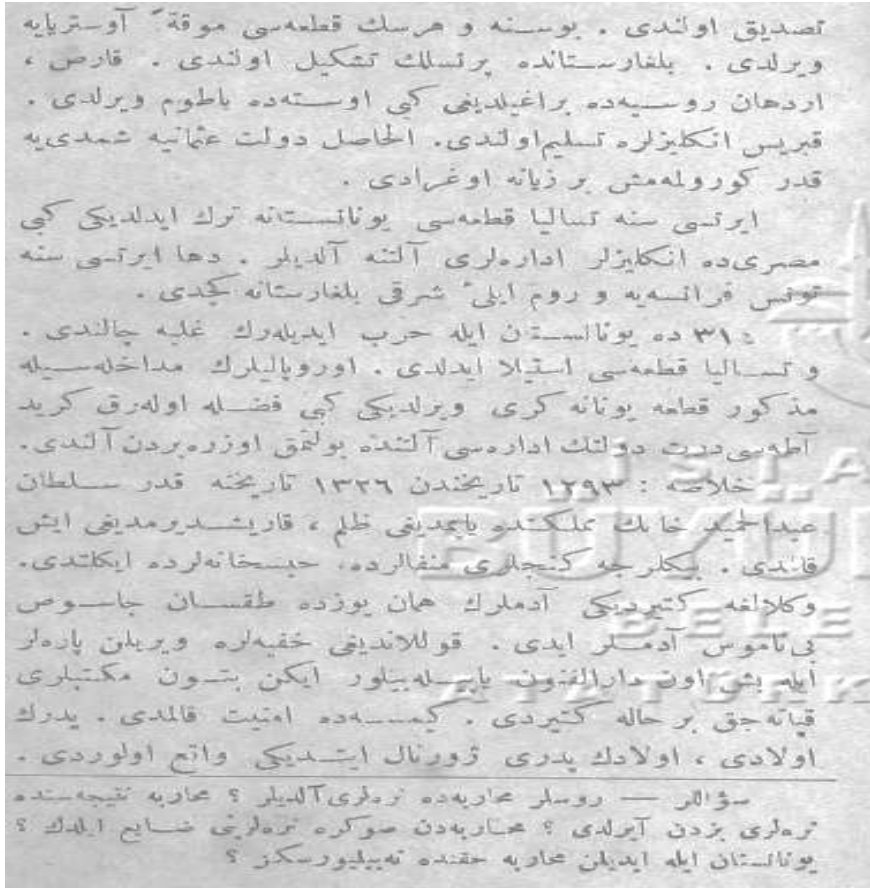 تصدیق اولندی . بوسنه و هرسك قطعه‌سی موقةً آوستریایه
ویرلدی . بلغارستانده پرنسلك تشكیل اولندی . قارص ،
اردهان روسیه‌ده براغیلدیغی كبی اوسته‌ده باطوم ویرلدی .
قبریس انكلیزلره تسلیم اولندی. الحاصل دولت عثمانیه شمدی‌یه
قدر كورولمه‌مش بر زیانه اوغرادی .
ایرتسی سنه تسالیا قطعه‌سی یونانستانه ترك ایدلدیكی كبی
مصری‌ده انكلیزلر اداره‌لری آلتنه آلدیلر . دها ایرتسی سنه
تونس فرانسه‌یه و روم ایلیٔ شرقی بلغارستانه كچدی .
٣١٥ ده یونانستان ایله حرب ایدیله‌رك غلبه چالندی .
و تسالیا قطعه‌سی استیلا ایدلدی . اوروپالیلرك مداخله‌سیله
مذكور قطعه یونانه كری ویرلدیكی كبی فضله اوله‌رق كرید
آطه‌سی درت دولتك اداره‌سی آلتنده بولنمق اوزره بزدن آلندی.
خلاصه : ١٢٩٣ تاریخندن ١٣٢٦ تاریخنه قدر سلطان
عبدالحمید خانك مملكتده یاپمدیغی ظلم ، قاریشدیرمدیغی ایش
قالمدی . بیكلرجه كنجلری منفالرده، حبسخانه‌لرده ایكلتدی.
وكلالغه كتیردیكی آدملرك همان یوزده طقسان جاسوس
بی‌ناموس آدملر ایدی . قوللاندیغی خفیه‌لره ویریلن پاره‌لر
ایله بش اون دارالفنون یاپیله‌بیلور ایكن بتون مكتبلری
قپانه‌جق بر حاله كتیردی . كیمسه‌ده امنیت قالمدی . پدرك
اولادی ، اولادك پدری ژورنال ایتدیكی واقع اولوردی .
سؤاللر — روسلر محاربه‌ده نره‌لری آلدیلر ؟ محاربه نتیجه‌سنده
نره‌لری بزدن آیرلدی ؟ محاربه‌دن صوكره نره‌لرینی ضایع ایلدك ؟
یونانستان ایله ایدیلن محاربه حقنده نه‌بیلیورسكز ؟
ISTA
BÜYÜK
BELE
ATATÜRK